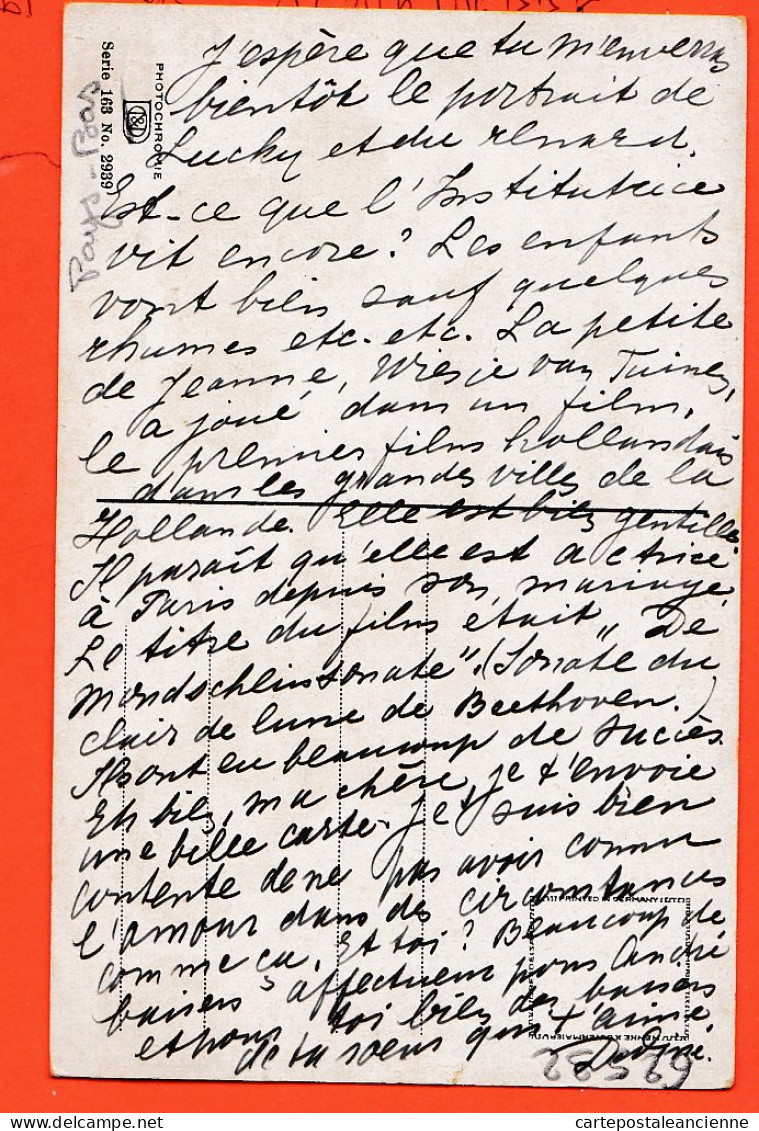 J'espère que tu m'enverras
bientôt le portrait de
Lucky et du renard.
Est-ce que l'Institutrice
vit encore? Les enfants
vont bien sauf quelques
rhumes etc. etc. La petite
de Jeanne, Wiesje van Tuinen,
a joué dans un film,
le premier film hollandais
dans les grandes villes de la
Hollande. Elle est bien gentille.
Il paraît qu'elle est actrice
à Paris depuis son mariage.
Le titre du film était "De
Mondscheinsonate". (Sonate du
clair de lune de Beethoven.)
Ils ont eu beaucoup de succès.
Eh bien, ma chère, je t'envoie
une belle carte. Je suis bien
contente de ne pas avoir connu
l'amour dans des circonstances
comme ça. Et toi? Beaucoup de
baisers affectueux pour André
et pour toi bien des baisers
de ta soeur qui t'aime
PHOTOCHROMIE
Serie 163 No. 2939
Pays-Bas
PRINTED IN GERMANY
cartepostaleancienne